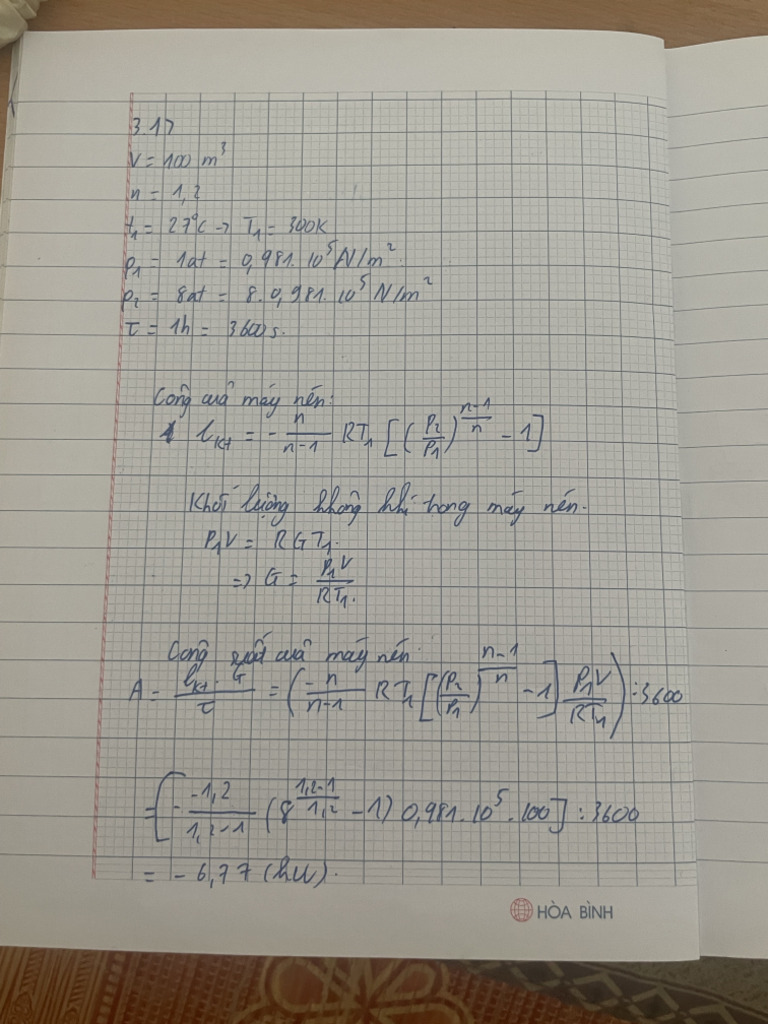 3.17
V = 100 m³
n = 1,2
t₁ = 27°C → T₁ = 300K
p₁ = 1at = 0,981. 10⁵ N/m².
p₂ = 8at = 8. 0,981. 10⁵ N/m²
τ = 1h = 3600s.
Công của máy nén:
l_kt = - n/(n-1) RT₁ [(p₂/p₁)^((n-1)/n) - 1]
Khối lượng không khí trong máy nén.
P₁V = RGT₁.
=> G = P₁V/RT₁.
Công suất của máy nén.
A = (l_kt . G)/τ = (-n/(n-1) RT₁ [(p₂/p₁)^((n-1)/n) - 1] P₁V/RT₁) : 3600
= [- -1,2/(1,2-1) (8^((1,2-1)/1,2) - 1) 0,981. 10⁵. 100] : 3600
= - 6,77 (kW).
HÒA BÌNH